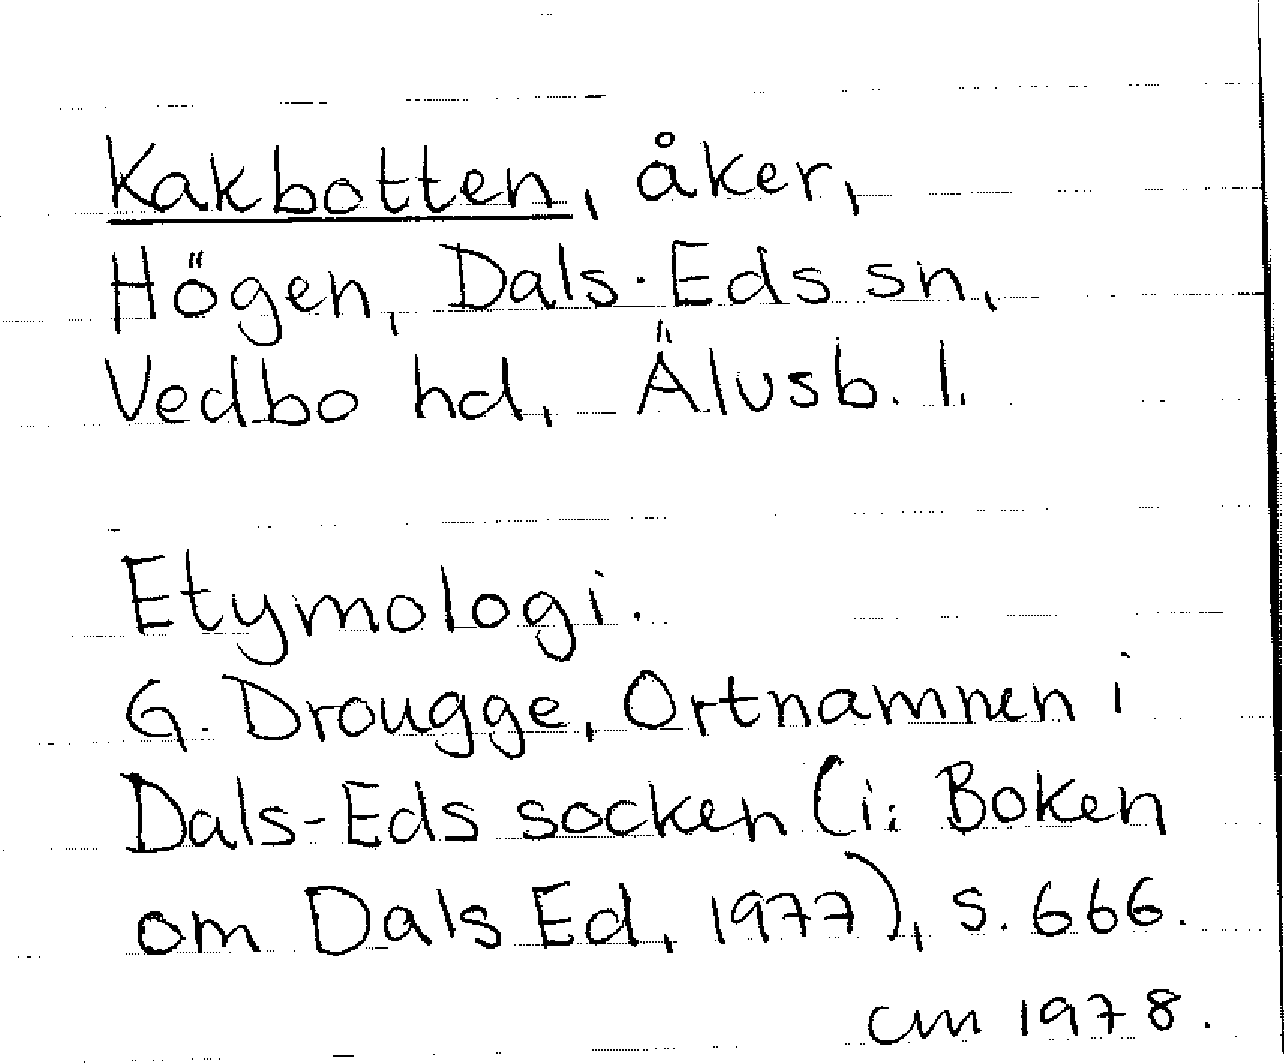 Kakbotten, åker,
Högen, Dals-Eds sn,
Vedbo hd, Älvsb. l.
Etymologi.
G. Drougge, Ortnamnen i
Dals-Eds socken (i: Boken
om Dals Ed, 1977), s. 666.
CM 1978.